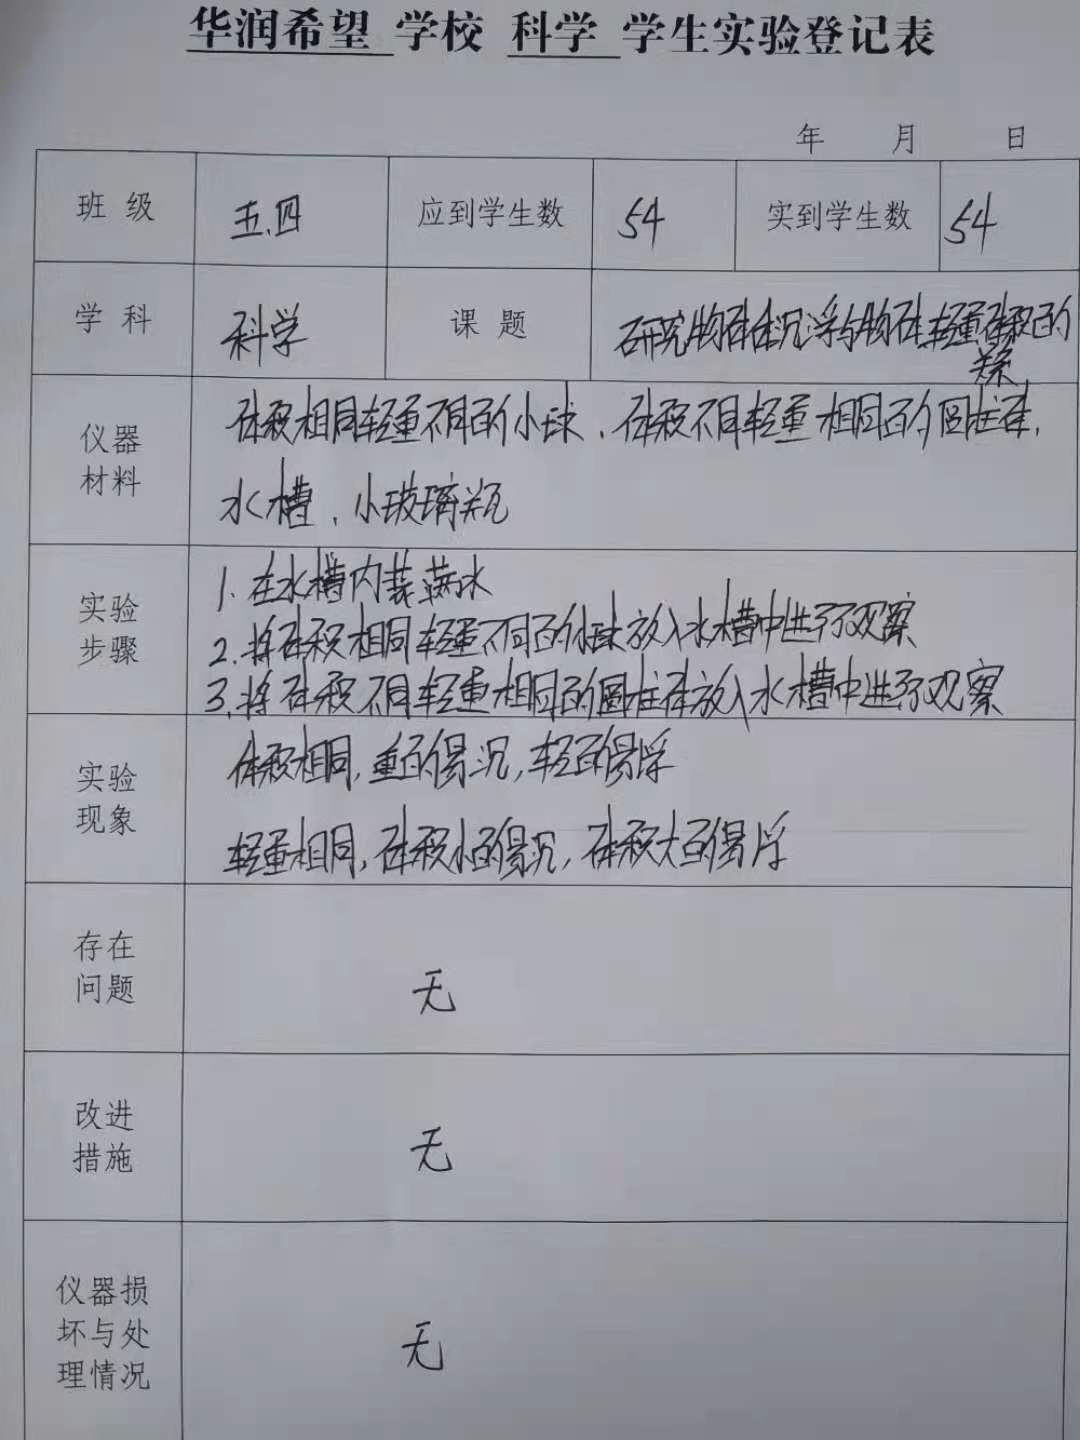 华润希望 学校 科学 学生实验登记表
年 月 日
班 级 五.四 应到学生数 54 实到学生数 54
学 科 科学 课 题 研究物体沉浮与物体轻重体积的
关系
仪器
材料
体积相同轻重不同的小球、体积不同轻重相同的圆柱体,
水槽、小玻璃瓶
实验
步骤
1. 在水槽内装满水
2. 将体积相同轻重不同的小球放入水槽中进行观察
3. 将体积不同轻重相同的圆柱体放入水槽中进行观察
实验
现象
体积相同,重的易沉,轻的易浮
轻重相同,体积小的易沉,体积大的易浮
存在
问题
无
改进
措施
无
仪器损
坏与处
理情况
无